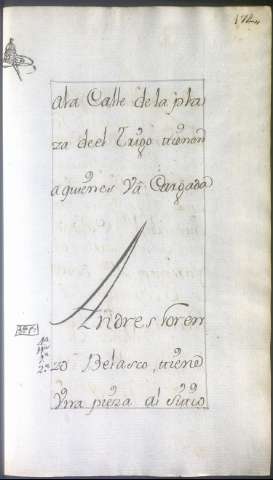 172
ala Calle de la pla
za deel Trigo tienen
a quienes Va Cargada
Andres loren
zo Belasco, tiene
Vna pieza al sitio